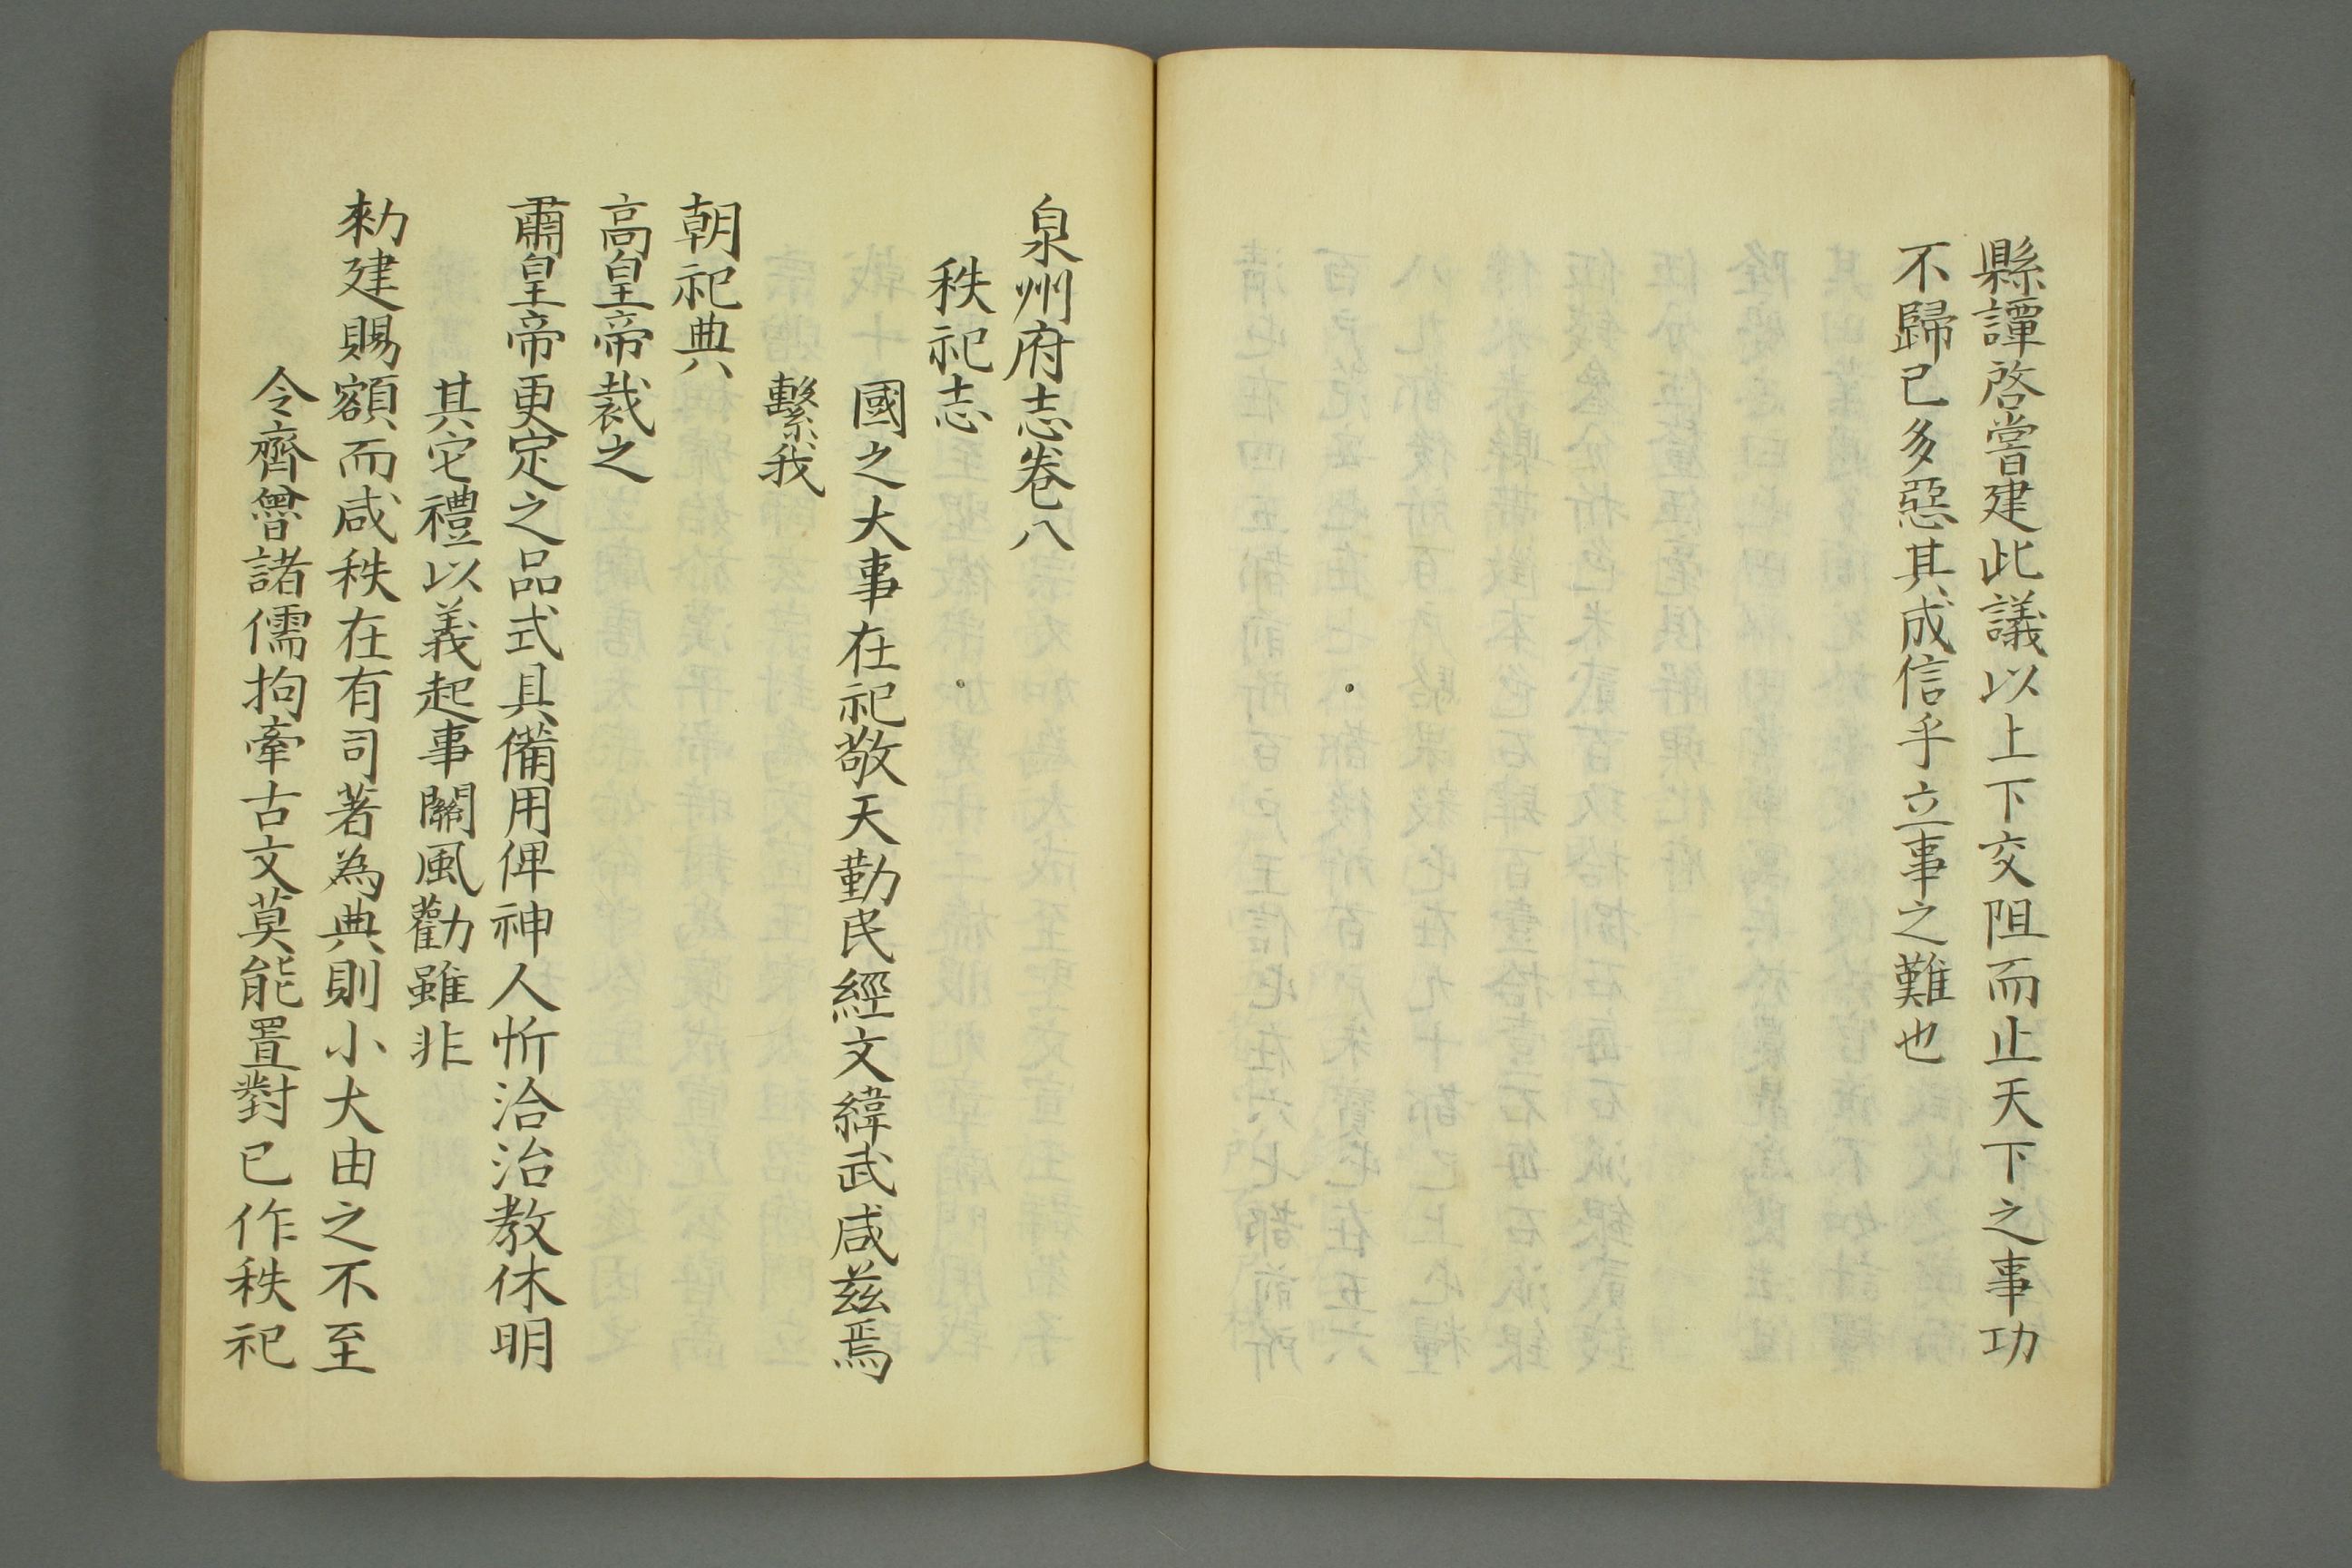 縣譚啓嘗建此議以上下交阻而止天下之事功
不歸已多惡其成信乎立事之難也
泉州府志卷八
秩祀志
國之大事在祀敬天勤民經文緯武咸兹焉
繫我
朝祀典
高皇帝裁之
肅皇帝更定之品式具備用俾神人忻洽治教休明
其它禮以義起事關風勸雖非
勑建賜額而咸秩在有司著為典則小大由之不至
令齊魯諸儒拘牽古文莫能置對已作秩祀